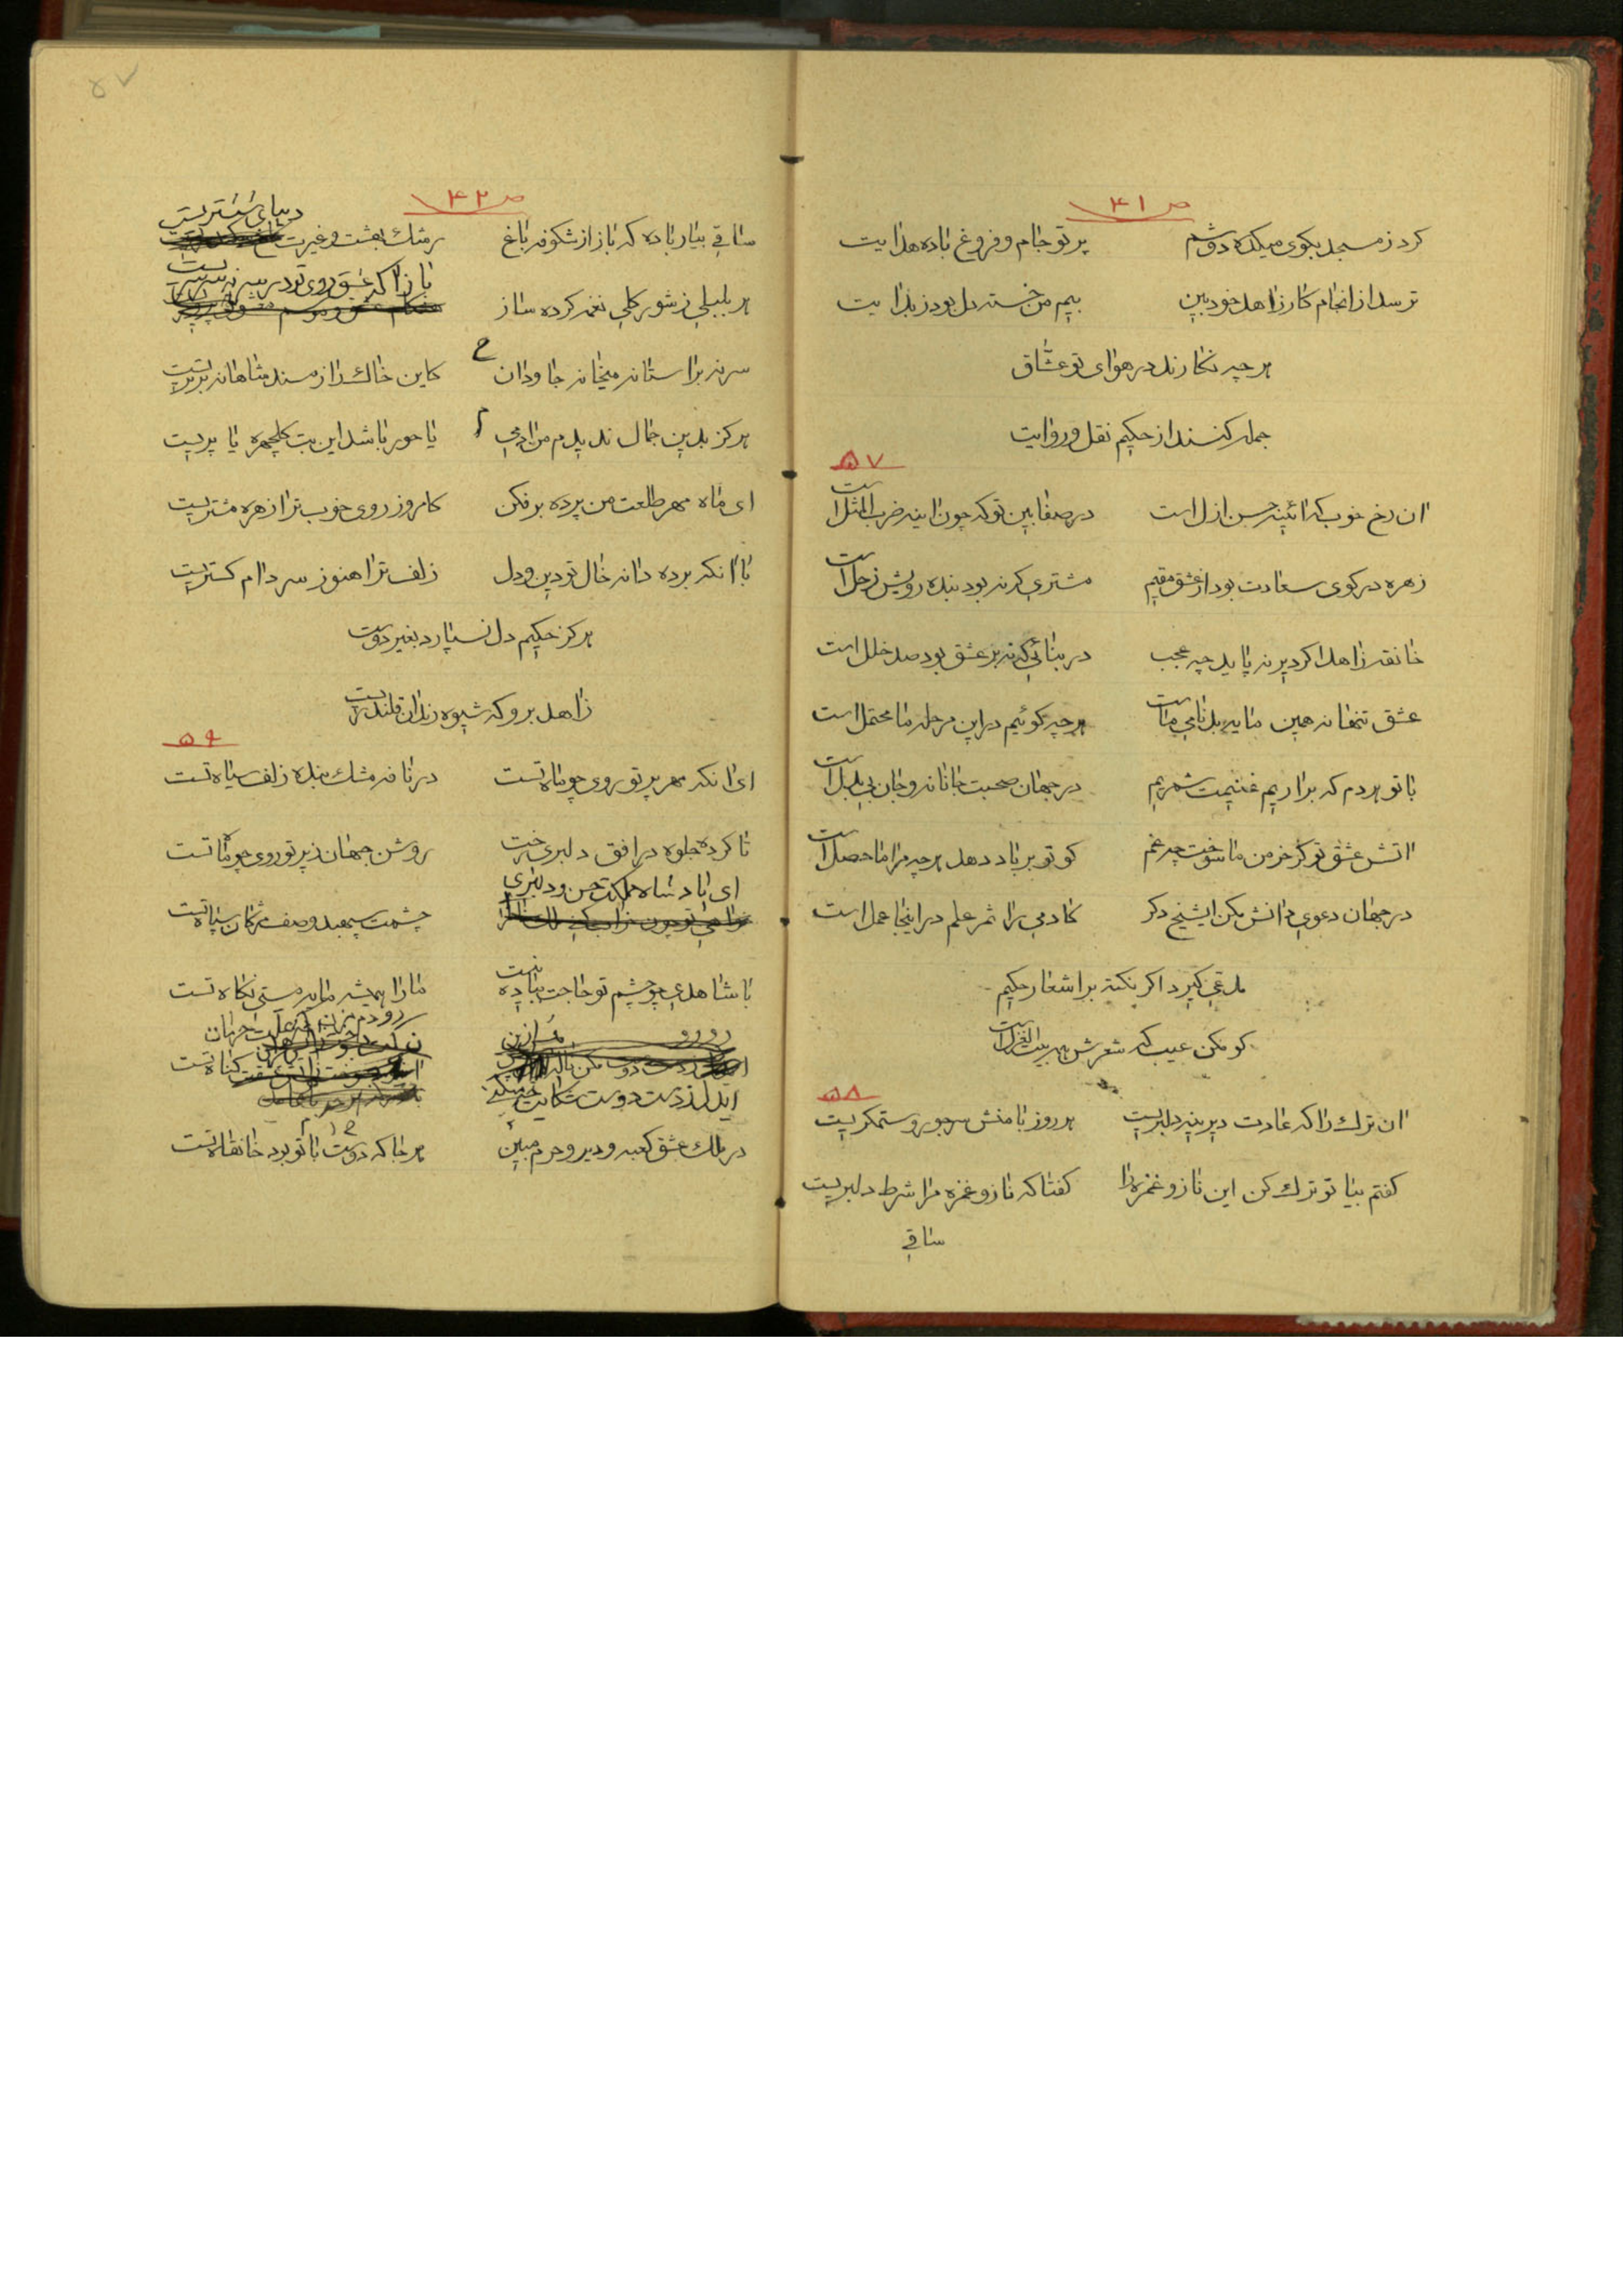 ص ۴۱
کرد ز مسجد بکوی میکده دوشم پرتو جام و فروغ باده هدایت
ترسد از انجام کار زاهد خودبین بیم من خسته دل بود ز بدایت
هر چه نکارند در هوای تو عشّاق
جمله کنند از حکیم نقل و روایت
۵۷
ان رخ خوب که ائینه حسن ازل است در صفا بین تو که چون اینه ضرب المثل است
زهره در کوی سعادت بود از عشق مقیم مشتری کر نه بود بنده رویش زحل است
خانقه زاهد اکر دیر نپاید چه عجب در بنائی که نه بر عشق بود صد خلل است
عشق تنها نه همین مایه بدنامی ماست هر چه کوئیم در این مرحله ما محتمل است
با تو هر دم که براریم غنیمت شمریم در جهان صحبت جانانه و جان بی بدل است
اتش عشق تو کر خرمن ما سوخت چه غم کو تو بر باد دهد هر چه مرا ماحصل است
در جهان دعوی دانش مکن ایشیخ دکر کادمی را ثمر علم در اینجا عمل است
مدعی کیرد اکر نکته بر اشعار حکیم
کو مکن عیب که شعرش همه بیت الغزل است
۵۸
ان ترک را که عادت دیرینه دلبریست هر روز با منش سر جور و ستمکریست
کفتم بیا تو ترک کن این ناز و غمزه را کفتا که ناز و غمزه مرا شرط دلبریست
ساقی
۵۷
ص ۴۲
دیبای ششتریست
ساقی بیار باده که باز از شکوفه باغ رشک بهشت و غیرت
باز اکه عشق روی تو در سر نه سرسریست
هر بلبلی ز شور کلی نغمه کرده ساز
سر نه بر استانه میخانه جاودان کاین خاک را ز مسند شاهانه برتریست
هرکز بدین جمال ندیدم من ادمی یا حور باشد این بت کلچهره یا پریست
ای ماه مهر طلعت من پرده برفکن کامروز روی خوب ترا زهره مشتریست
با انکه برده دانه خال تو دین و دل زلف ترا هنوز سر دام کستریست
هرکز حکیم دل نسپارد بغیر دوست
زاهد برو که شیوه رندان قلندریست
۵۹
ای انکه مهر پرتو روی چو ماه تست در نافه مشک بنده زلف سیاه تست
تا کرده جلوه در افق دلبری رخت روشن جهان ز پرتو روی چو ماه تست
ای پادشاه مملکت حسن و دلبری
چشمت سپهبد و صف مژکان سپاه تست
با شاهدی چو چشم تو حاجت بباده نیست ما را همیشه مایه مستی نکاه تست
کناه تست
ایدل ز دست دوست شکایت چه میکنی
در ملک عشق کعبه و دیر و حرم مبین هر جا که دوست با تو بود خانقاه تست